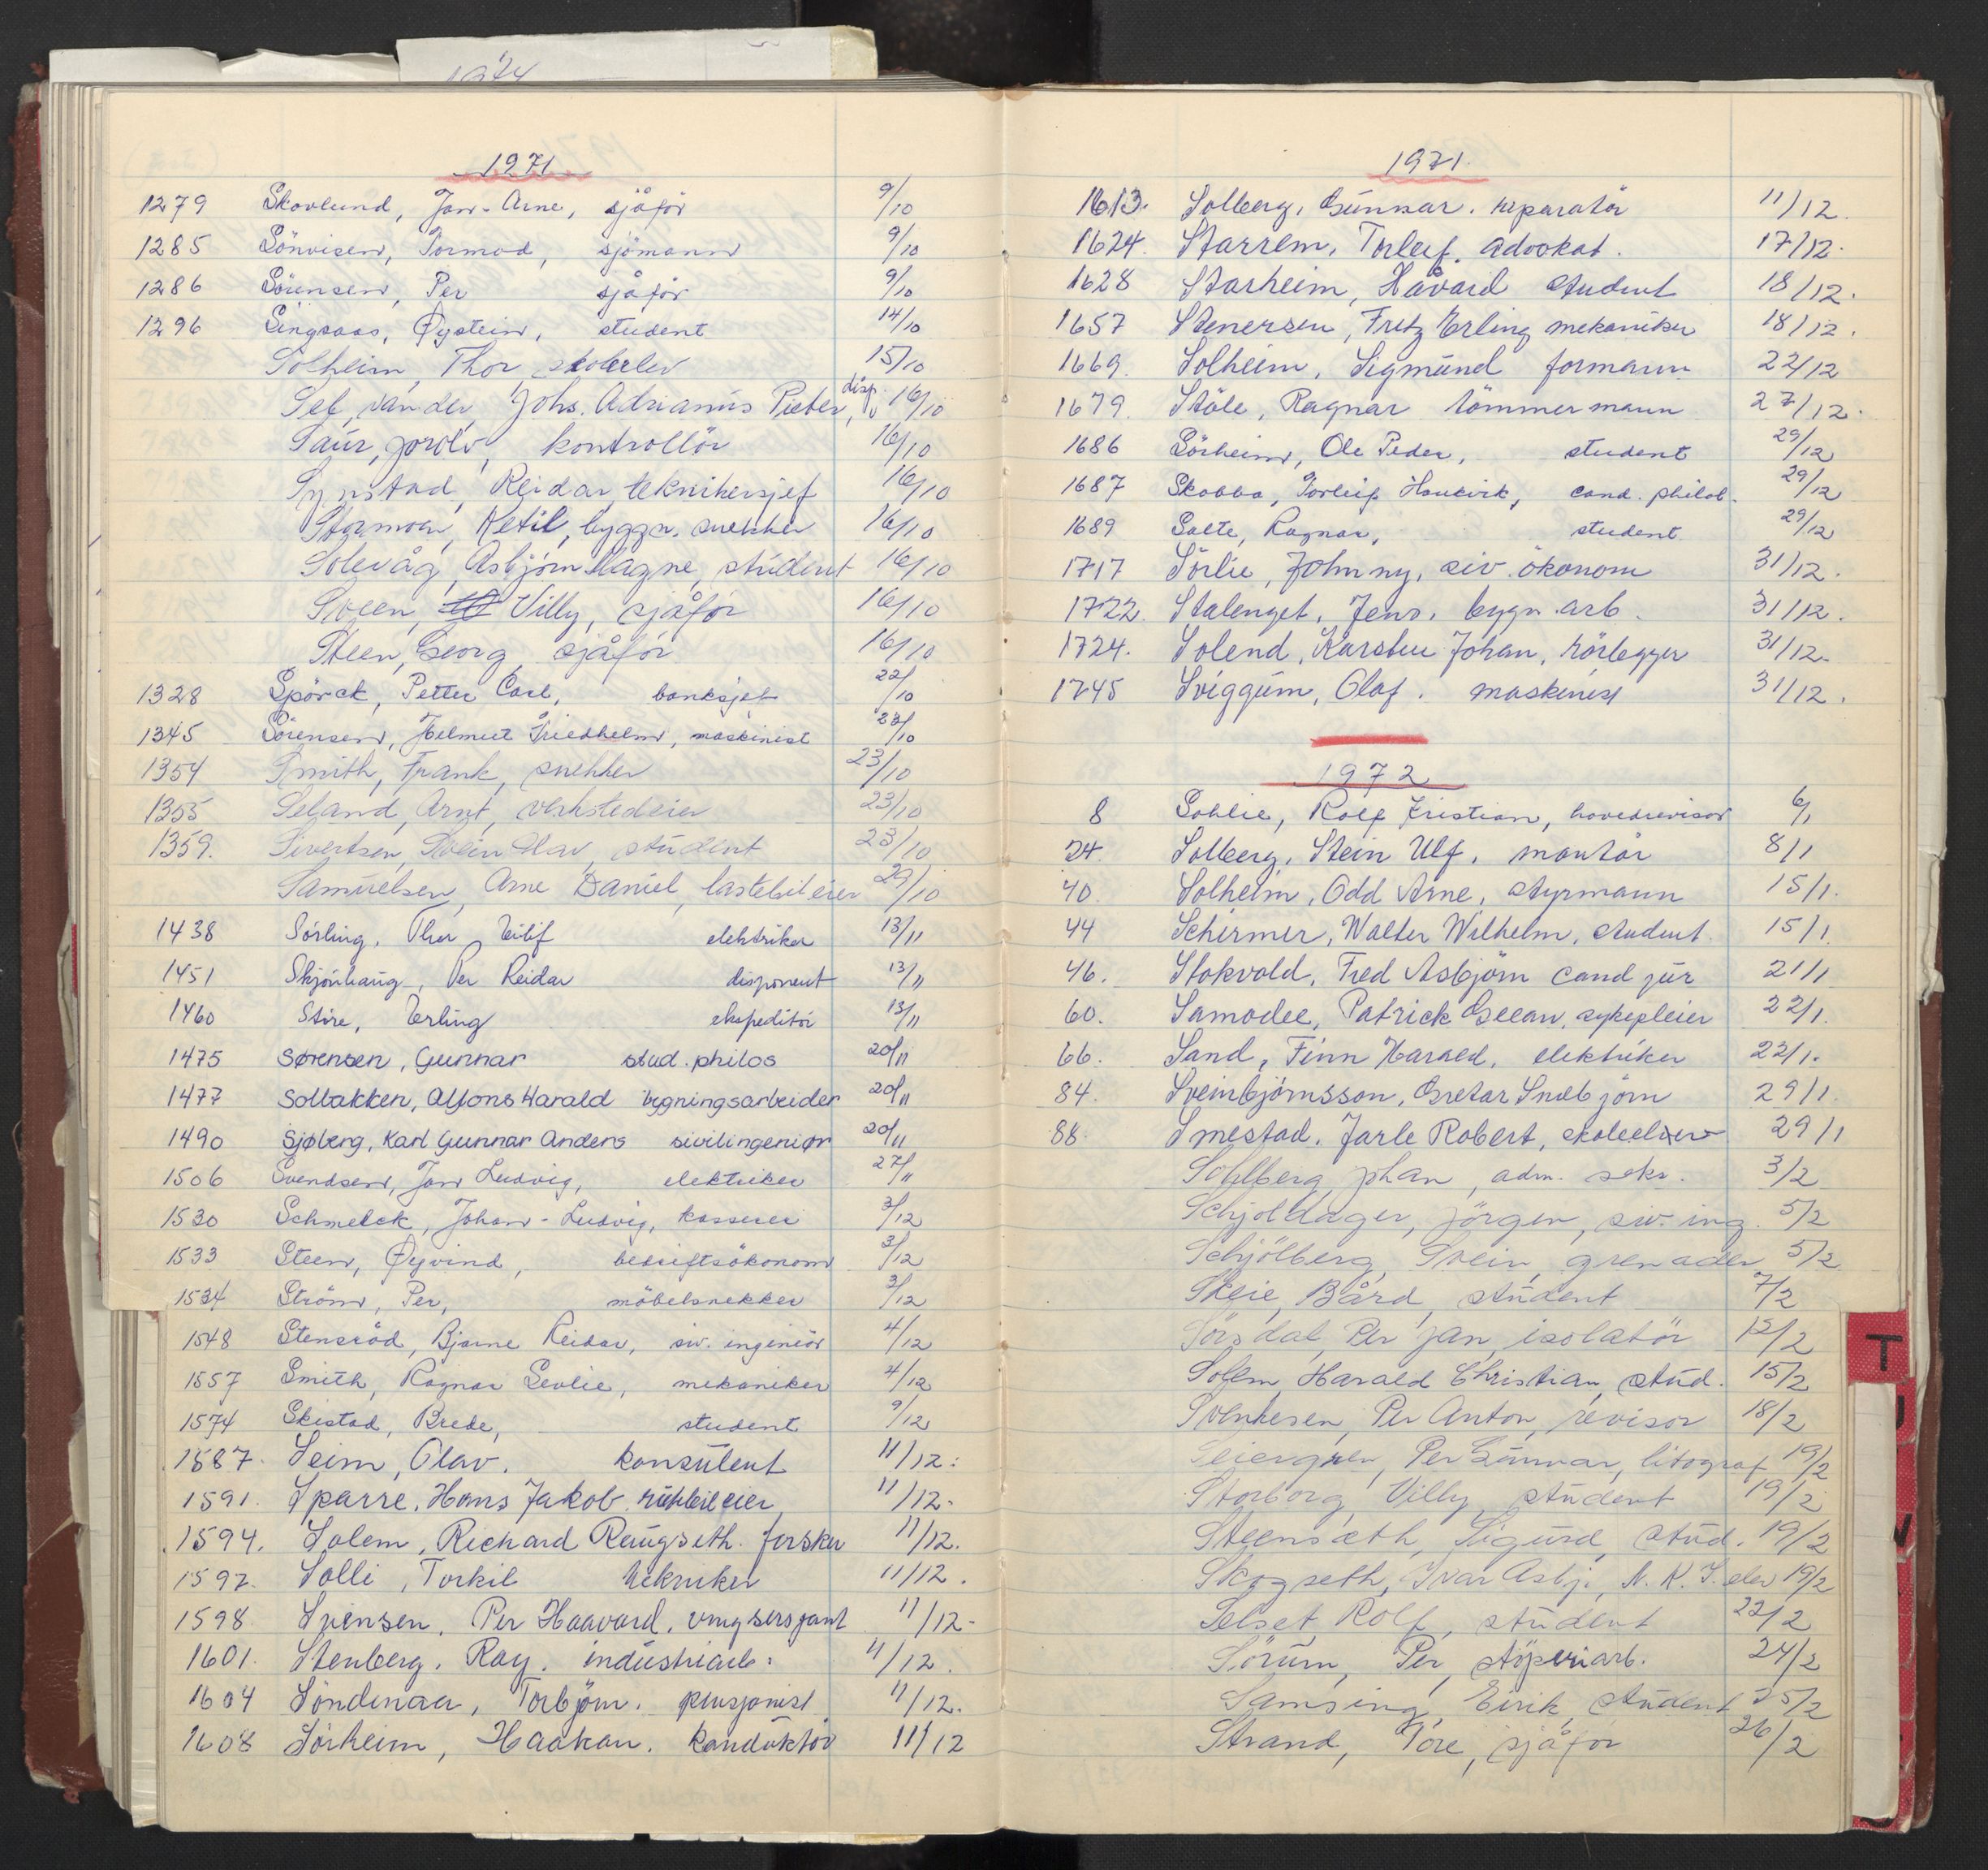 1971
1279 Skovlund, Jan-Arne, sjåför 9/10
1285 Sönvisen, Tormod, sjömann 9/10
1286 Sörensen, Per sjåför 9/10
1296 Singsaas, Øystein, student 14/10
Solheim, Thor, skoleelev 15/10
Sef, van der, Johs. Adrianus Pieter, disp. 16/10
Saur, Jorolv, kontrollör 16/10
Synstad, Reidar, teknikersjef 16/10
Stormoen, Ketil, byggn. snekker 16/10
Solevåg, Asbjörn Magne, student 16/10
Sveen, Villy, sjåför 16/10
Steen, Georg, sjåför 16/10
1328 Spörck, Petter Carl, banksjef 22/10
1345 Sörensen, Helmut Friedhelm, maskinist 23/10
1354 Smith, Frank, snekker 23/10
1355 Seland, Arnt, verkstedeier 23/10
1359. Sivertsen, Svein Olav, student 23/10
Samuelsen, Arne Daniel, lastebileier 29/10
1438 Sörling, Thor Eilif elektriker 13/11
1451 Skjönhaug, Per Reidar disponent 13/11
1460 Störe, Erling ekspeditör 13/11
1475 Sørensen, Gunnar stud. philos 20/11
1477 Solbakken, Alfons Harald bygningsarbeider 20/11
1490 Sjøberg, Karl Gunnar Anders sivilingeniør 20/11
1506 Svendsen, Jan Ludvig, elektriker 27/11
1530 Schmelck, Johan-Ludvig, kasserer 3/12
1533 Steen, Øyvind, bedriftsökonom 3/12
1534 Ström, Per, möbelsnekker 3/12
1548 Stensröd, Bjarne Reidar, siv. ingeniör 4/12
1557 Smith, Ragnar Leslie, mekaniker 4/12
1574 Skistad, Brede, student 9/12
1587. Seim, Olav. konsulent 11/12.
1591. Sparre, Hans Jakob, rutebileier 11/12.
1594. Solem, Richard Raugseth. forsker 11/12.
1597. Solli, Torkil tekniker 11/12.
1598. Svensen, Per Haavard, vingsersjant 11/12-
1601. Stenberg, Ray. industriarb. 11/12.
1604 Söndenaa, Torbjörn. pensjonist 11/12.
1608 Sörheim, Haakon. konduktör 11/12
1971
1613. Solberg, Gunnar. reparatör 11/12.
1624. Starrem, Torleif. advokat. 17/12.
1628 Starheim, Håvard student 18/12.
1657 Stenersen, Fritz Erling mekaniker 18/12.
1669. Solheim, Sigmund formann 22/12
1679. Ståle, Ragnar tömmermann 27/12.
1686 Sörheim, Ole Peder, student 29/12
1687 Skobba, Torleif Haukvik, cand. philol. 29/12
1689 Salte, Ragnar, student 29/12
1717 Sörlie, Johnny, siv. ökonom 31/12.
1722. Stalenget, Jens, bygn. arb. 31/12.
1724. Solend, Karsten Johan, rörlegger 31/12.
1745 Sviggum, Olaf. maskinist 31/12.
1972
8 Sohlie, Rolf Kristian, hovedrevisor 6/1
24. Solberg, Stein Ulf, montör 8/1
40. Solheim, Odd Arne, styrmann 15/1.
44 Schirmer, Walter Wilhelm, student 15/1.
46. Stokvold, Fred Asbjörn cand jur 21/1
60. Samodee, Patrick Geean, sykepleier 22/1.
66. Sand, Finn Harald, elektriker 22/1.
84. Sveinbjörnsson, Gretar Snæbjörn 29/1.
88. Smestad, Jarle Robert, skoleelev 29/1
Sohlberg, Johan, adm. sekr. 3/2
Schjoldager, Jörgen, siv. ing. 5/2
Schjölberg, Svein, grenader 5/2
Skeie, Bård, student 7/2
Sörsdal, Per Jan, isolatör 12/2
Solem, Harald Christian, stud. 15/2
Svenkesen, Per Anton, revisor 18/2
Seiergren, Per Gunnar, litograf 19/2
Storborg, Villy, student 19/2
Steensæth, Sigurd, stud. 19/2
Skogseth, Ivar Asbj., N.K.I. elev 19/2
Selset, Rolf, student 22/2
Sörum, Per, støperiarb. 24/2
Samsing, Eirik, student 25/2
Strand, Tore, sjåför 26/2
T